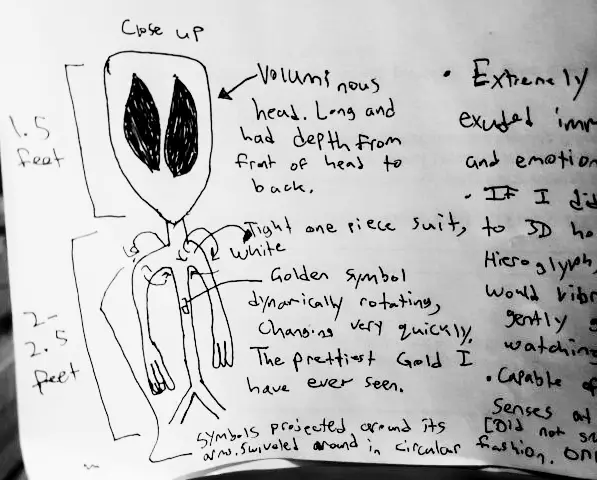 Close up
Voluminous
head. Long and
had depth from
front of head to
back.
1.5
feet
Tight one piece suit,
white
Golden symbol
dynamically rotating,
Changing very quickly.
The prettiest Gold I
have ever seen.
2-
2.5
feet
Symbols projected around its
arms. Swiveled around in circular fashion.
• Extremely
exuded
and emotion
• If I did
to 3D
Hieroglyph,
would
gently
watching
• Capable of
Senses
[Did not